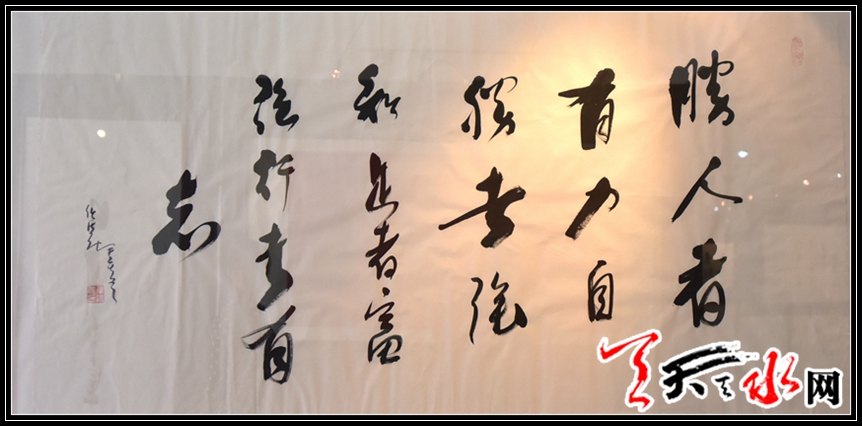 勝人者
有力自
勝者强
知足者富
强行者有
志
天天天水网